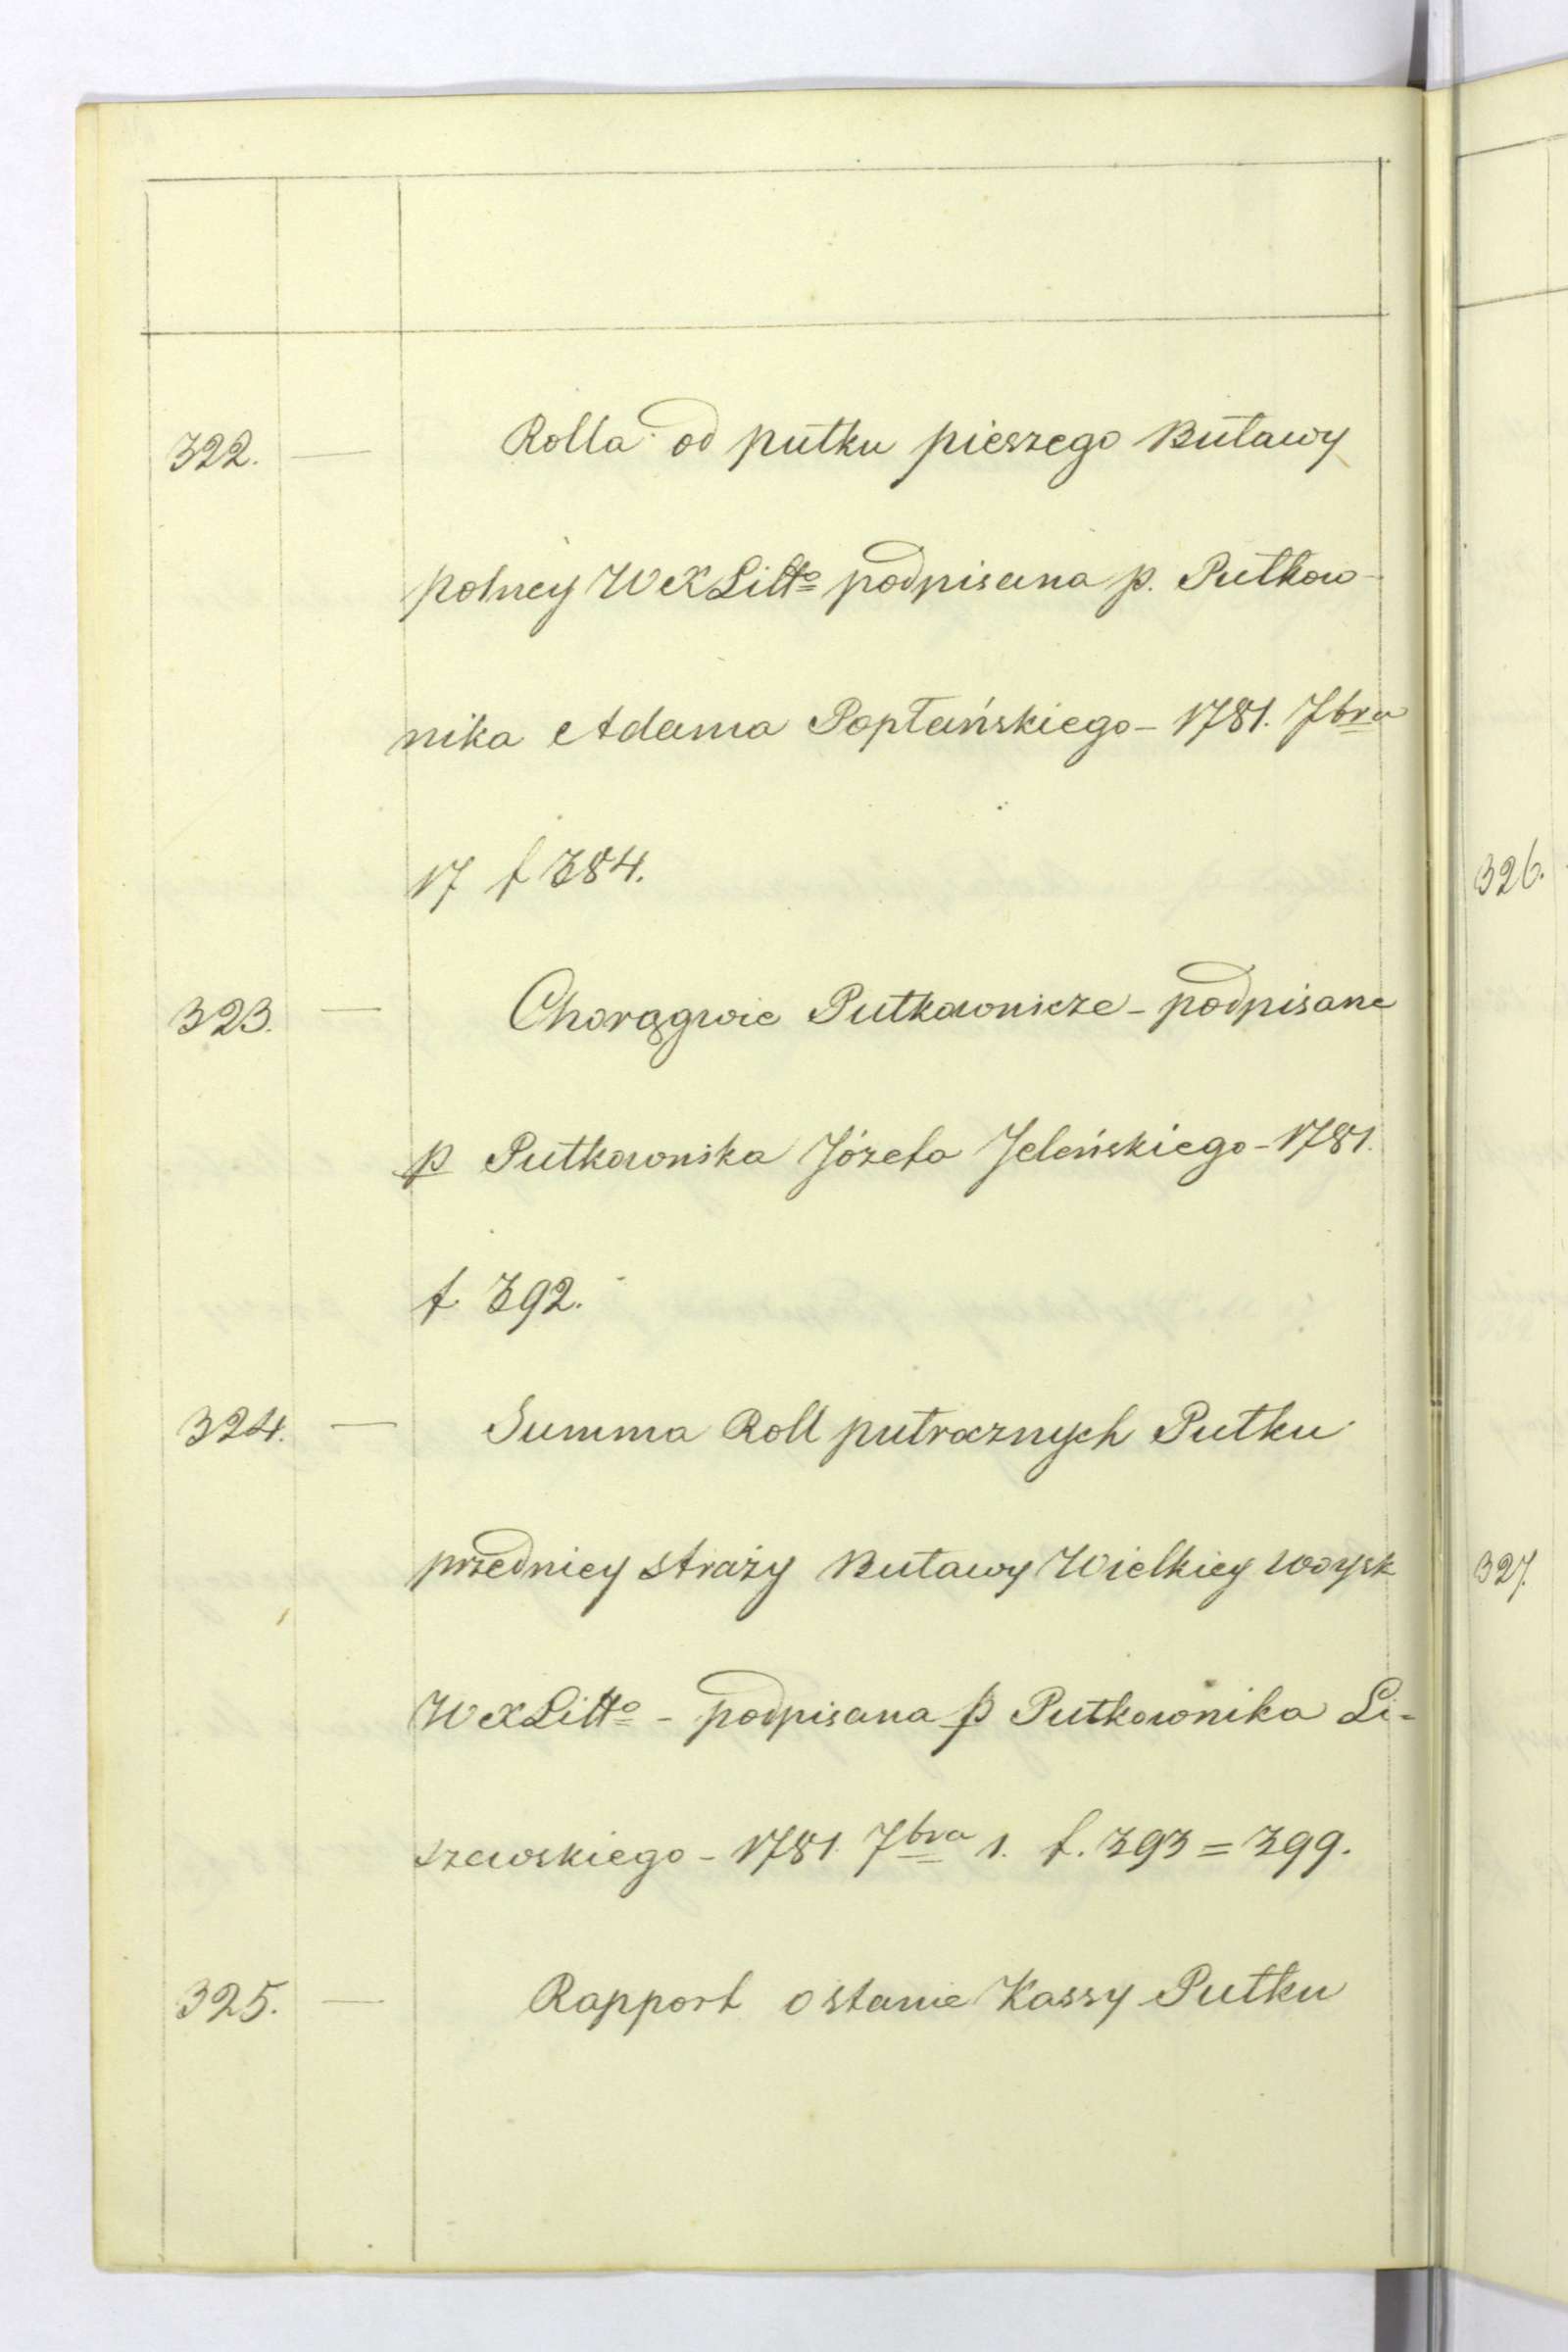 322. — Rolla od pułku pieszego Buławy
polney W X Litt<sup>o</sup> podpisana p. Pułkow-
nika Adama Popłańskiego - 1781. 7<sup>bra</sup>
17 f 384.
323. — Chorągwie Pułkownicze - podpisane
p Pułkownika Józefa Jeleńskiego - 1781.
f. 392.
324. — Summa Roll pułrocznych Pułku
przedniey straży Buławy Wielkiey woysk
W X Litt<sup>o</sup> - podpisana p Pułkownika Li-
szewskiego - 1781. 7<sup>bra</sup> 1. f. 393 = 399.
325. — Rapport o stanie Kassy Pułku
326.
327.